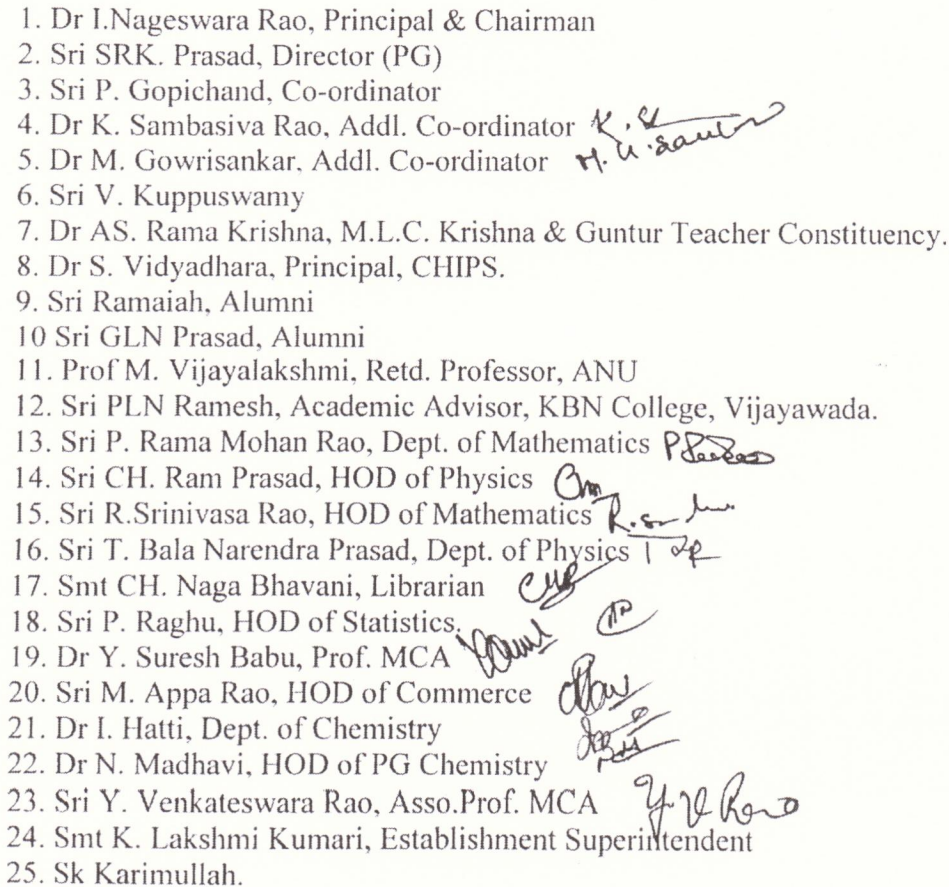 1. Dr I.Nageswara Rao, Principal & Chairman
2. Sri SRK. Prasad, Director (PG)
3. Sri P. Gopichand, Co-ordinator
4. Dr K. Sambasiva Rao, Addl. Co-ordinator
5. Dr M. Gowrisankar, Addl. Co-ordinator
6. Sri V. Kuppuswamy
7. Dr AS. Rama Krishna, M.L.C. Krishna & Guntur Teacher Constituency.
8. Dr S. Vidyadhara, Principal, CHIPS.
9. Sri Ramaiah, Alumni
10 Sri GLN Prasad, Alumni
11. Prof M. Vijayalakshmi, Retd. Professor, ANU
12. Sri PLN Ramesh, Academic Advisor, KBN College, Vijayawada.
13. Sri P. Rama Mohan Rao, Dept. of Mathematics
14. Sri CH. Ram Prasad, HOD of Physics
15. Sri R.Srinivasa Rao, HOD of Mathematics
16. Sri T. Bala Narendra Prasad, Dept. of Physics
17. Smt CH. Naga Bhavani, Librarian
18. Sri P. Raghu, HOD of Statistics.
19. Dr Y. Suresh Babu, Prof. MCA
20. Sri M. Appa Rao, HOD of Commerce
21. Dr I. Hatti, Dept. of Chemistry
22. Dr N. Madhavi, HOD of PG Chemistry
23. Sri Y. Venkateswara Rao, Asso.Prof. MCA Y.V Rao
24. Smt K. Lakshmi Kumari, Establishment Superintendent
25. Sk Karimullah.